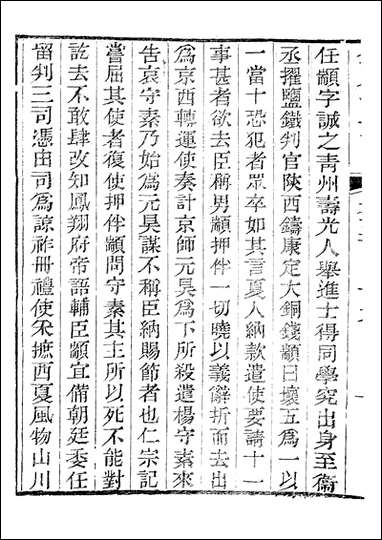 任顓字誠之青州壽光人舉進士得同學究出身至衞
丞擢鹽鐵判官陝西鑄康定大銅錢顓曰壞五為一以
一當十恐犯者眾卒如其言夏人納款遣使要請十一
事甚者欲去臣稱男顓押伴一切曉以義辭折而去出
為京西轉運使奏計京師元昊為下所殺遣楊守素來
告哀守素乃始為元昊謀不稱臣納賜節者也仁宗記
嘗屈其使者復使押伴顓問守素其主所以死不能對
訖去不敢肆改知鳳翔府帝語輔臣顓宜備朝廷委任
留判三司憑由司為諒祚冊禮使采摭西夏風物山川